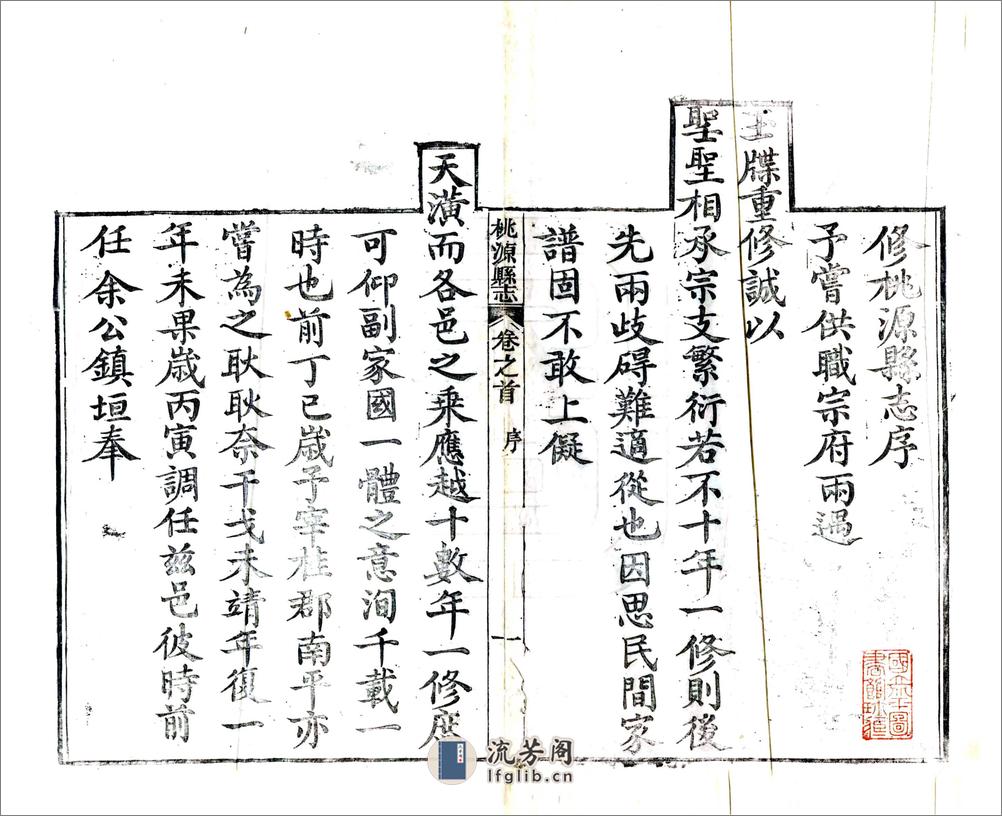 修桃源縣志序
予嘗供職宗府兩遇
玉牒重修誠以
聖聖相承宗支繁衍若不十年一修則後
先兩歧碍難適從也因思民間家
譜固不敢上儗
桃源縣志 卷之首 序 一
天潢而各邑之乘應越十數年一修庶
可仰副家國一體之意洵千載一
時也前丁巳歲予宰桂郡南平亦
嘗為之耿耿奈干戈未靖年復一
年未果歲丙寅調任兹邑彼時前
任余公鎮垣奉
國立北平圖書館珍藏
流芳阁
lfglib.cn